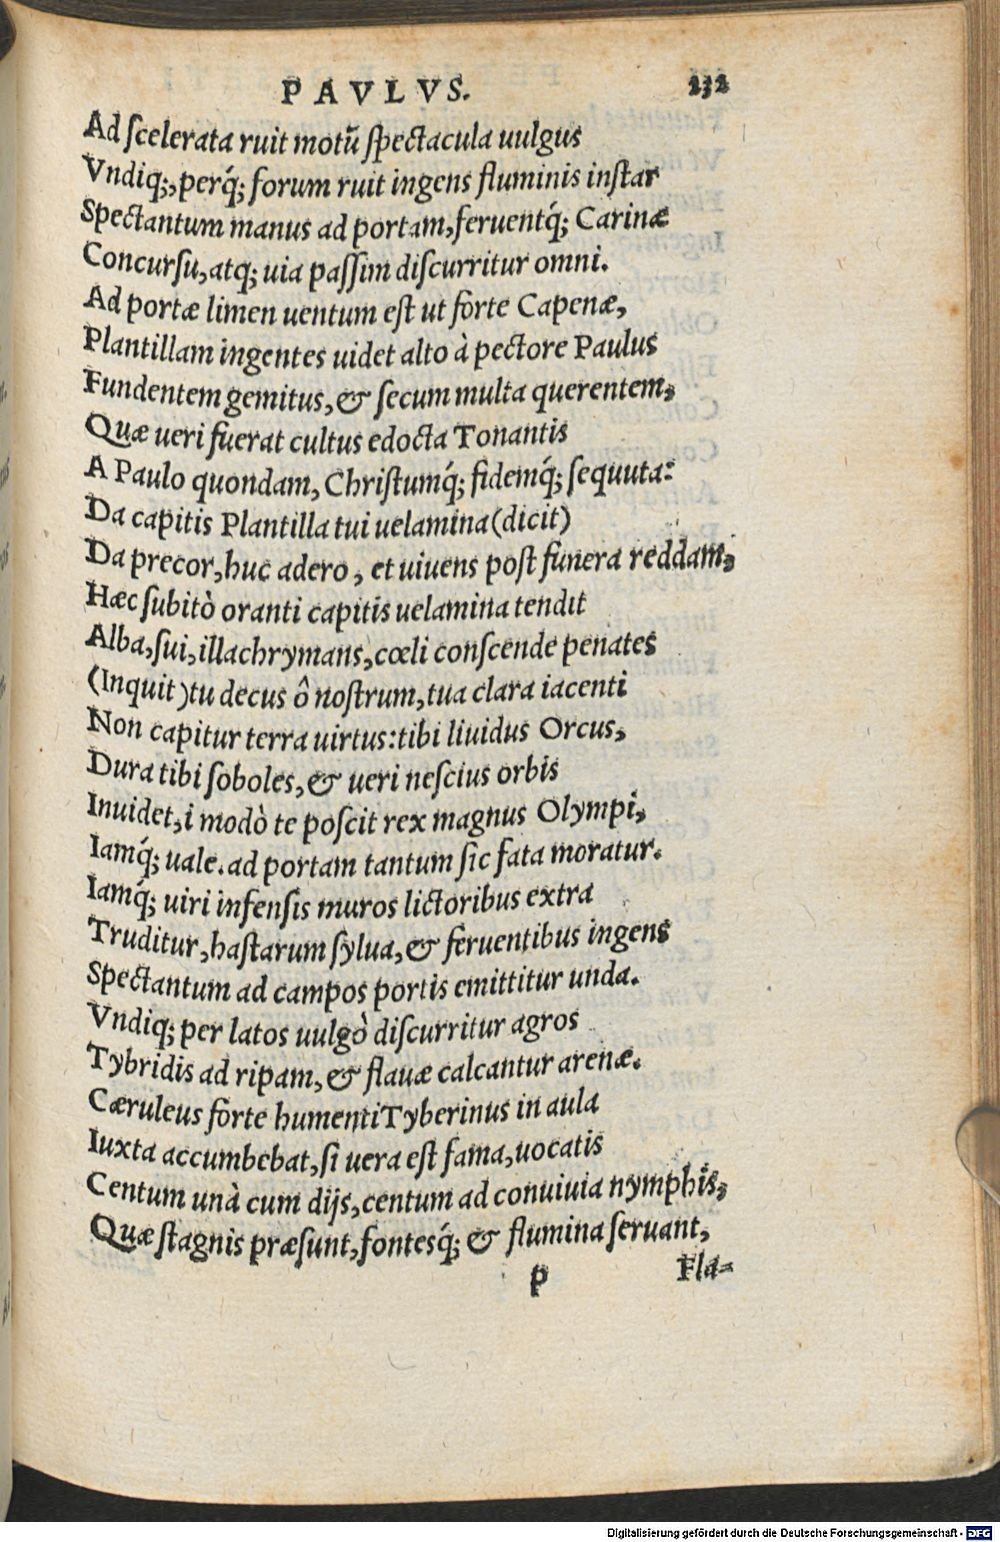 PAVLVS. 232
Ad ſcelerata ruit motū ſpectacula uulgus
Vndiq;, perq́; forum ruit ingens fluminis inſtar
Spectantum manus ad portam, feruentq́; Carinæ
Concurſu, atq; uia paſſim diſcurritur omni.
Ad portæ limen uentum eſt ut forte Capenæ,
Plantillam ingentes uidet alto à pectore Paulus
Fundentem gemitus, & ſecum multa querentem,
Quæ ueri fuerat cultus edocta Tonantis
A Paulo quondam, Chriſtumq́; fidemq́; ſequuta:
Da capitis Plantilla tui uelamina (dicit)
Da precor, huc adero, et uiuens poſt funera reddam,
Hæc ſubitò oranti capitis uelamina tendit
Alba, ſui, illachrymans, cœli conſcende penates
(Inquit) tu decus ô noſtrum, tua clara iacenti
Non capitur terra uirtus: tibi liuidus Orcus,
Dura tibi ſoboles, & ueri neſcius orbis
Inuidet, i modò te poſcit rex magnus Olympi,
Iamq́; uale. ad portam tantum ſic fata moratur.
Iamq́; uiri infenſis muros lictoribus extra
Truditur, haſtarum ſylua, & feruentibus ingens
Spectantum ad campos portis emittitur unda.
Vndiq; per latos uulgò diſcurritur agros
Tybridis ad ripam, & flauæ calcantur arenæ.
Cæruleus forte humenti Tyberinus in aula
Iuxta accumbebat, ſi uera eſt fama, uocatis
Centum unà cum dijs, centum ad conuiuia nymphis,
Quæ ſtagnis præſunt, fontesq́; & flumina ſeruant,
p Fla-
Digitalisierung gefördert durch die Deutsche Forschungsgemeinschaft - DFG